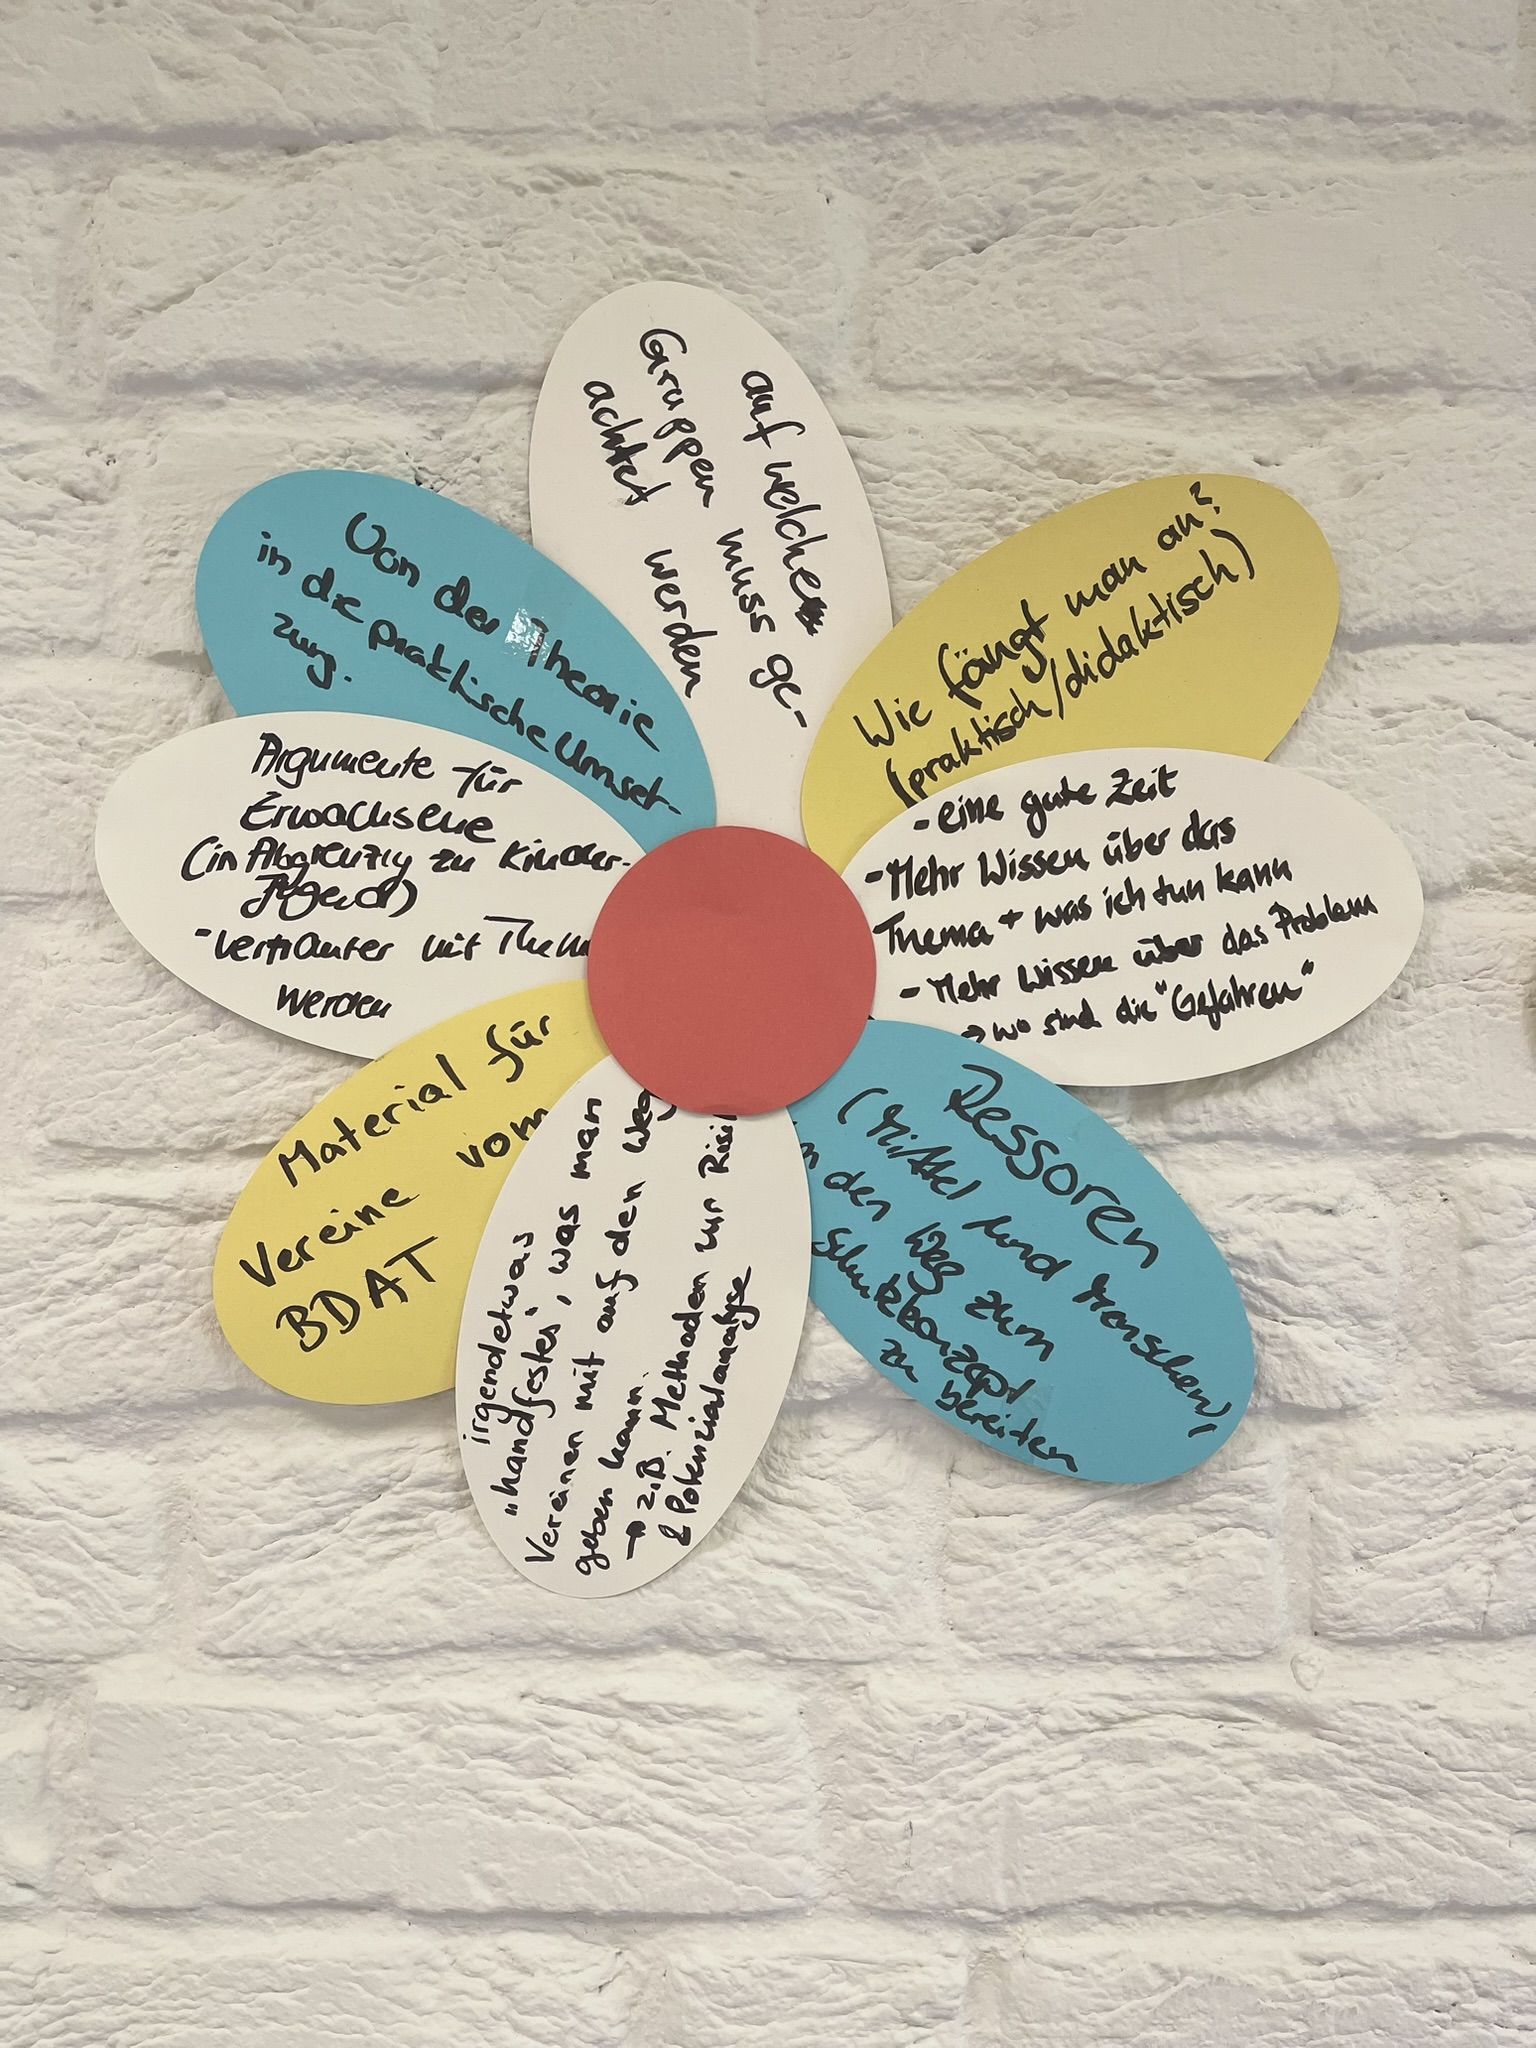 auf welche
Gruppen muss ge-
achtet werden
Wie fängt man an?
(praktisch/didaktisch)
- eine gute Zeit
- Mehr Wissen über das
Thema + was ich tun kann
- Mehr Wissen über das Problem
→ wo sind die "Gefahren"
Ressoren
(Mittel und Menschen,
den Weg zum
Schutzkonzept
zu bereiten
irgendetwas
"handfestes", was man
Vereinen mit auf den Weg
geben kann.
→ z.B. Methoden zur Risi
& Potenzialanalyse
Material für
Vereine vom
BDAT
Argumente für
Erwachsene
(in Abgrenzug zu Kinder-
Jugend)
- vertrauter mit Thema
werden
Von der Theorie
in die praktische Umset-
zung.